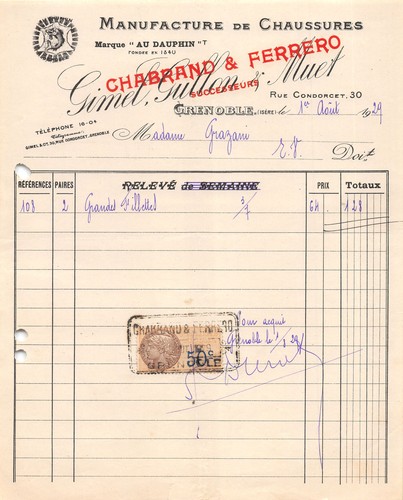 MANUFACTURE DE CHAUSSURES
Marque "AU DAUPHIN"
FONDÉE EN 1840
CHABRAND & FERRERO
SUCCESSEURS
Gimel, Gullon & Muet
RUE CONDORCET, 30
GRENOBLE, (ISÈRE) le 1er Août 1929
TÉLÉPHONE 16-04
Télégrammes:
GIMEL & Ct, 30, RUE CONDORCET, GRENOBLE
Madame Grazani
E.V. Doit
RÉFÉRENCES PAIRES RELEVÉ de SEMAINE PRIX Totaux
103 2 Grandes Fillettes 3/7 64 128
CHABRAND & FERRERO
50c
Pour acquit
Grenoble le 1/8 29